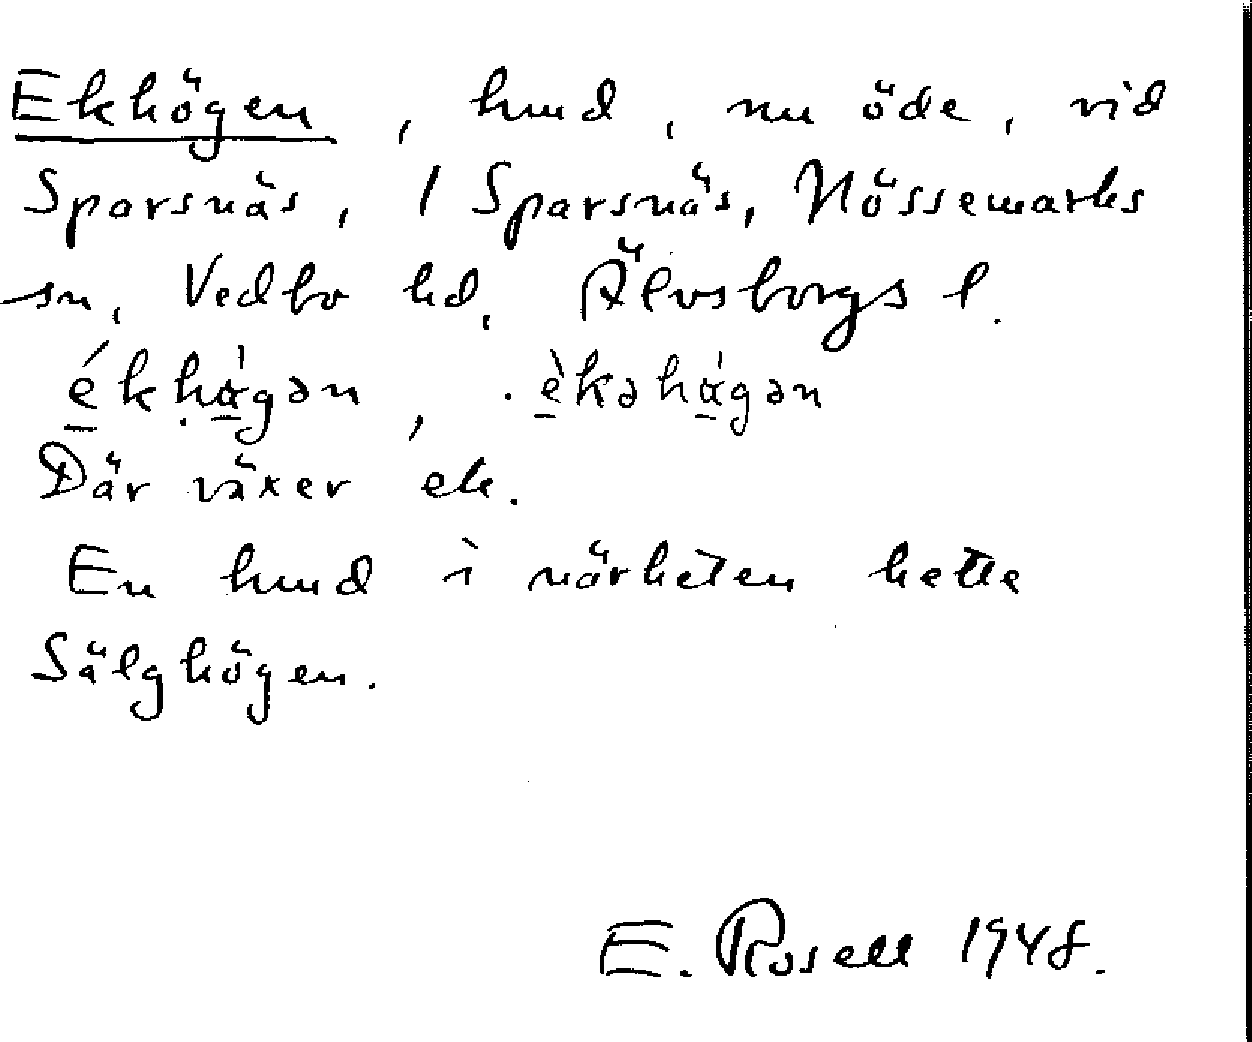 Ekhögen, hmd, nu öde, vid
Sparsnäs, 1 Sparsnäs, Nössemarks
sn, Vedbo hd, Älvsborgs l.
ékhà̱gən, . èkəhà̱gən
Där växer ek.
En hmd i närheten hette
Sälghögen.
E. Rosell 1948.